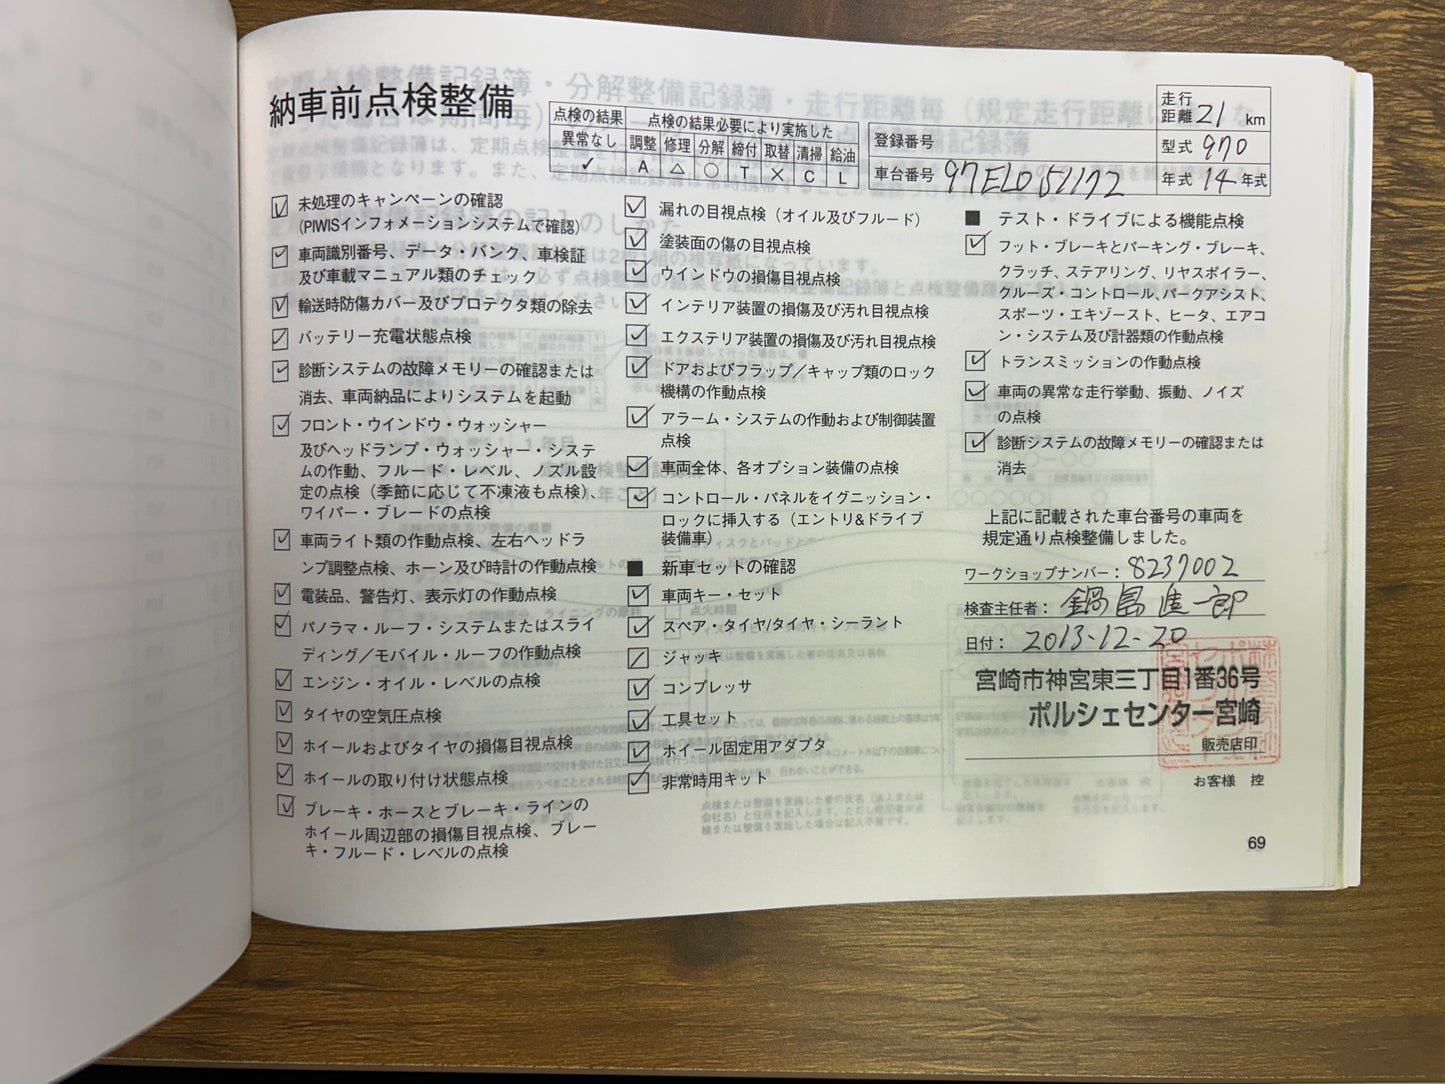 納車前点検整備
点検の結果 点検の結果必要により実施した
異常なし 調整 修理 分解 締付 取替 清掃 給油
✓ A △ ○ T × C L
登録番号
車台番号 97EL051172
走行距離 21 km
型式 970
年式 14 年式
未処理のキャンペーンの確認
(PIWISインフォメーションシステムで確認)
車両識別番号、データ・バンク、車検証
及び車載マニュアル類のチェック
輸送時防傷カバー及びプロテクタ類の除去
バッテリー充電状態点検
診断システムの故障メモリーの確認または
消去、車両納品によりシステムを起動
フロント・ウインドウ・ウォッシャー
及びヘッドランプ・ウォッシャー・システ
ムの作動、フルード・レベル、ノズル設
定の点検（季節に応じて不凍液も点検）
ワイパー・ブレードの点検
車両ライト類の作動点検、左右ヘッドラ
ンプ調整点検、ホーン及び時計の作動点検
電装品、警告灯、表示灯の作動点検
パノラマ・ルーフ・システムまたはスライ
ディング／モバイル・ルーフの作動点検
エンジン・オイル・レベルの点検
タイヤの空気圧点検
ホイールおよびタイヤの損傷目視点検
ホイールの取り付け状態点検
ブレーキ・ホースとブレーキ・ラインの
ホイール周辺部の損傷目視点検、ブレー
キ・フルード・レベルの点検
漏れの目視点検（オイル及びフルード）
塗装面の傷の目視点検
ウインドウの損傷目視点検
インテリア装置の損傷及び汚れ目視点検
エクステリア装置の損傷及び汚れ目視点検
ドアおよびフラップ／キャップ類のロック
機構の作動点検
アラーム・システムの作動および制御装置
点検
車両全体、各オプション装備の点検
コントロール・パネルをイグニッション・
ロックに挿入する（エントリ&ドライブ
装備車）
■ 新車セットの確認
車両キー・セット
スペア・タイヤ/タイヤ・シーラント
ジャッキ
コンプレッサ
工具セット
ホイール固定用アダプタ
非常時用キット
■ テスト・ドライブによる機能点検
フット・ブレーキとパーキング・ブレーキ、
クラッチ、ステアリング、リヤスポイラー、
クルーズ・コントロール、パークアシスト、
スポーツ・エキゾースト、ヒータ、エアコ
ン・システム及び計器類の作動点検
トランスミッションの作動点検
車両の異常な走行挙動、振動、ノイズ
の点検
診断システムの故障メモリーの確認または
消去
上記に記載された車台番号の車両を
規定通り点検整備しました。
ワークショップナンバー：8237002
検査主任者：鍋島進一郎
日付：2013-12-20
宮崎市神宮東三丁目1番36号
ポルシェセンター宮崎
販売店印
お客様 控
69